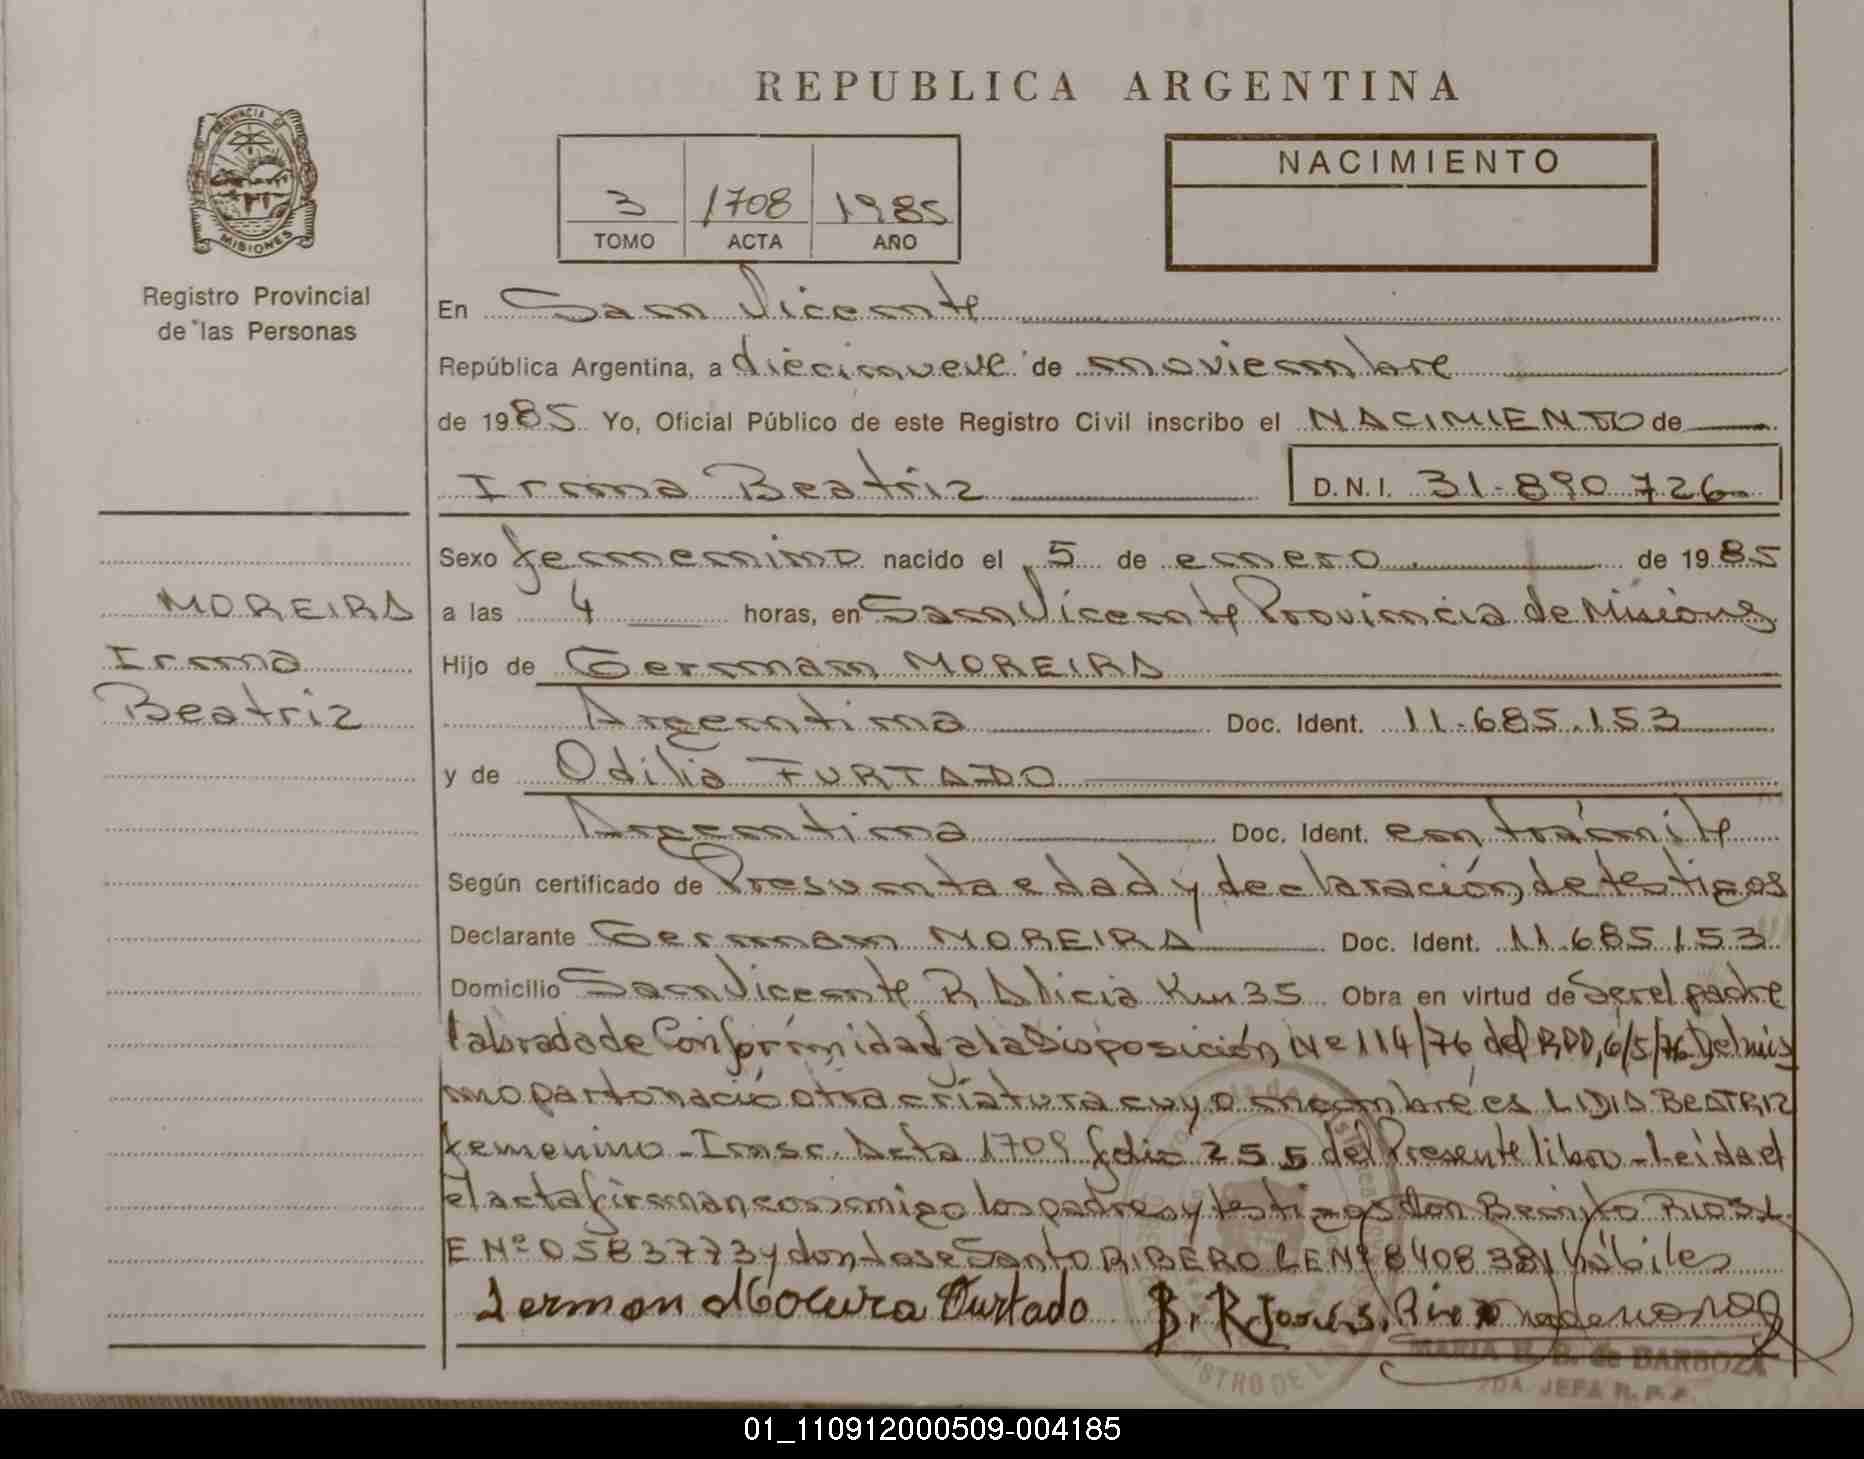 REPUBLICA ARGENTINA
PROVINCIA DE
MISIONES
Registro Provincial
de las Personas
3 1708 1985
TOMO ACTA AÑO
NACIMIENTO
En San Vicente
República Argentina, a diecinueve de noviembre
de 1985 Yo, Oficial Público de este Registro Civil inscribo el NACIMIENTO de
Irma Beatriz D.N.I. 31-890.726
MOREIRA
Irma
Beatriz
Sexo femenino nacido el 5 de enero de 1985
a las 4 horas, en San Vicente Provincia de Misiones
Hijo de German MOREIRA
Argentina Doc. Ident. 11.685.153
y de Odilia FURTADO
Argentina Doc. Ident. en trámite
Según certificado de Presunta edad y declaración de testigos
Declarante German MOREIRA Doc. Ident. 11.685.153
Domicilio San Vicente R Alicia Km 35 Obra en virtud de Ser el padre
labrado de Conformidad a la Disposición Nº 114/76 del RPP, 6/5/76. Del mis
mo parto nació otra criatura cuyo nombre es LIDIA BEATRIZ
femenino - Insc. Acta 1709 folio 255 del Presente libro - Leida el
el acta firman conmigo los padres y testigos don Benito RIOS L.
E Nº 0583773 y don Jose Santo RIBERO LE Nº 8408381 hábiles
German Moreira Furtado B. R.
MARIA B. B. de BARBOZA
2DA. JEFA R.P.P.
01_110912000509-004185